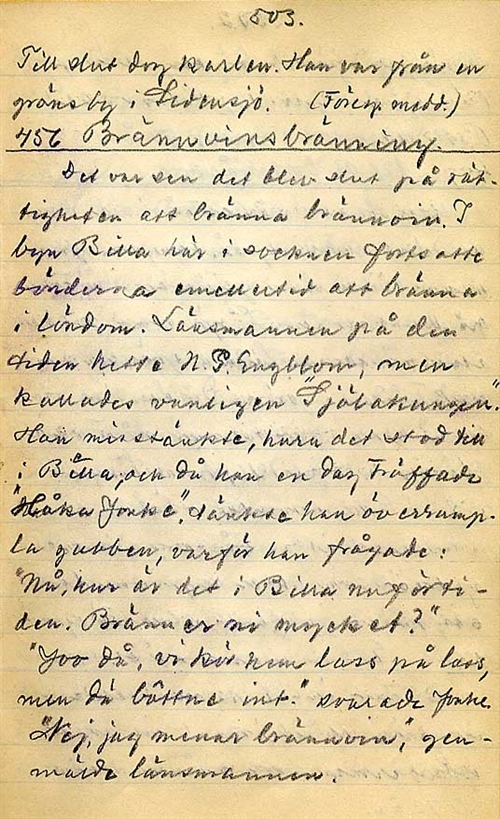 503.
Till slut dog karlen. Han var från en
gränsby i Sidensjö. (Föreg. medd.)
456 Brännvinsbränning.
Det var sen det blev slut på rät-
tigheten att bränna brännvin. I
byn Billa här i socknen fortsatte
bönderna emellertid att bränna
i löndom. Länsmannen på den
tiden hette N. P. Engblom, men
kallades vanligen "Själakungen".
Han misstänkte, huru det stod till
i Billa, och då han en dag träffade
"Håka Jonke", tänkte han överrump-
la gubben, varför han frågade:
"Nå, hur är det i Billa nu förti-
den. Bränner ni mycket?"
"Joo då, vi kör hem lass på lass,
men dä båttne int." svarade Jonke.
"Nej, jag menar brännvin," gen-
mälde länsmannen.